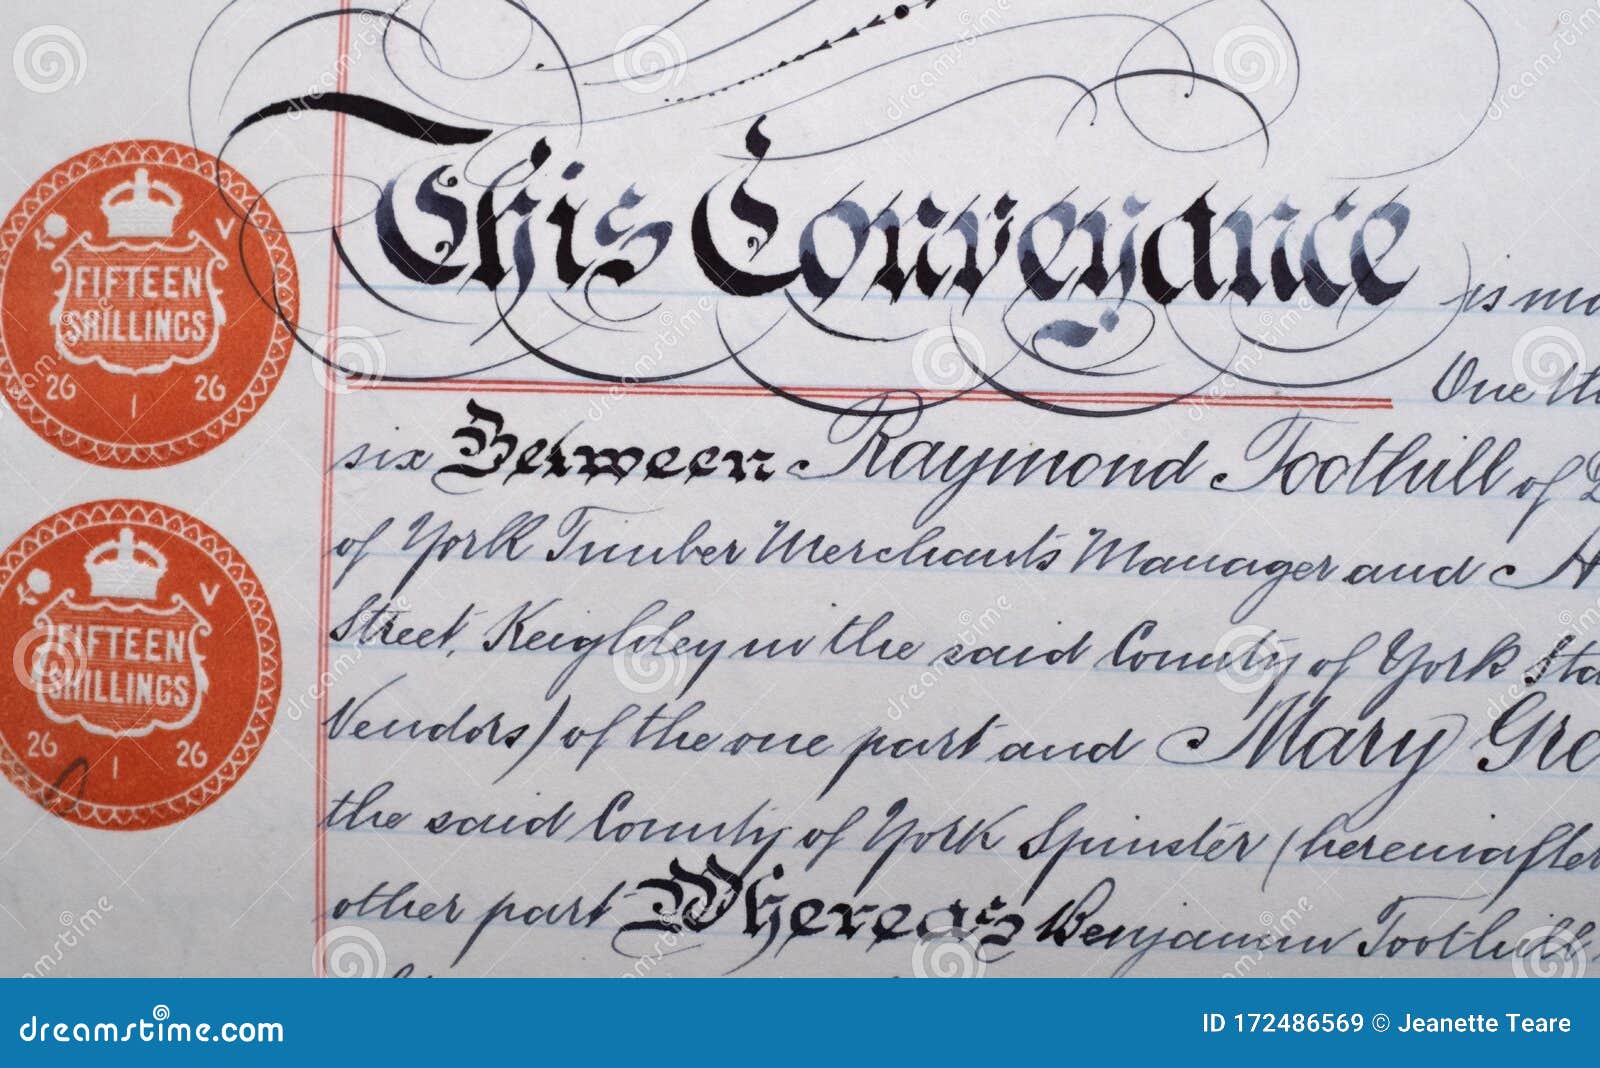 This Conveyance is ma
One th
six Between Raymond Toothill of
of York Timber Merchants Manager and
Street, Keighley in the said County of York Sta
Vendors) of the one part and Mary Gre
the said County of York Spinster (hereinafter
other part Whereas Benjamin Toothill
V
FIFTEEN
SHILLINGS
26 26
I
V
FIFTEEN
SHILLINGS
26 26
I
dreamstime.com
ID 172486569 © Jeanette Teare